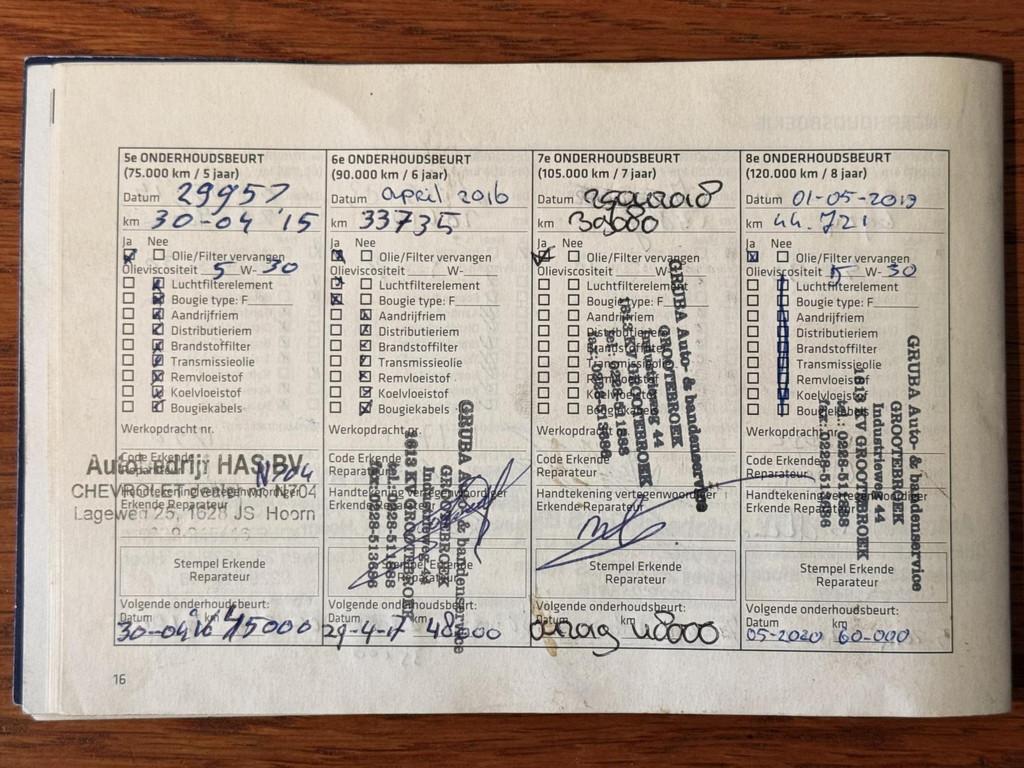 5e ONDERHOUDSBEURT
(75.000 km / 5 jaar)
Datum 29957
km 30-04 '15
Ja Nee
Olie/Filter vervangen
Olieviscositeit 5 W- 30
Luchtfilterelement
Bougie type: F
Aandrijfriem
Distributieriem
Brandstoffilter
Transmissieolie
Remvloeistof
Koelvloeistof
Bougiekabels
Werkopdracht nr.
Code Erkende
Reparateur N704
Handtekening vertegenwoordiger
Erkende Reparateur
Autobedrijf HAS BV
CHEVROLET dealer nr. N704
Lageweg 25, 1628 JS Hoorn
Stempel Erkende
Reparateur
Volgende onderhoudsbeurt:
Datum km
30-04 16 45000
6e ONDERHOUDSBEURT
(90.000 km / 6 jaar)
Datum april 2016
km 33735
Ja Nee
Olie/Filter vervangen
Olieviscositeit W-
Luchtfilterelement
Bougie type: F
Aandrijfriem
Distributieriem
Brandstoffilter
Transmissieolie
Remvloeistof
Koelvloeistof
Bougiekabels
Werkopdracht nr.
Code Erkende
Reparateur
Handtekening vertegenwoordiger
Erkende Reparateur
GRUBA Auto- & bandenservice
GROOTEBROEK
Industrieweg 44
1613 KV GROOTEBROEK
tel.: 0228-511888
fax.:0228-513686
Stempel Erkende
Reparateur
Volgende onderhoudsbeurt:
Datum km
29-4-17 48000
7e ONDERHOUDSBEURT
(105.000 km / 7 jaar)
Datum
km 39080
Ja Nee
Olie/Filter vervangen
Olieviscositeit W-
Luchtfilterelement
Bougie type: F
Aandrijfriem
Distributieriem
Brandstoffilter
Transmissieolie
Remvloeistof
Koelvloeistof
Bougiekabels
GRUBA Auto- & bandenservice
GROOTEBROEK
Industrieweg 44
1613 KV GROOTEBROEK
tel.: 0228-511888
fax.:0228-513686
Werkopdracht nr.
Code Erkende
Reparateur
Handtekening vertegenwoordiger
Erkende Reparateur
Stempel Erkende
Reparateur
Volgende onderhoudsbeurt:
Datum km
48000
8e ONDERHOUDSBEURT
(120.000 km / 8 jaar)
Datum 01-05-2019
km 44.721
Ja Nee
Olie/Filter vervangen
Olieviscositeit 5 W- 30
Luchtfilterelement
Bougie type: F
Aandrijfriem
Distributieriem
Brandstoffilter
Transmissieolie
Remvloeistof
Koelvloeistof
Bougiekabels
Werkopdracht nr.
Code Erkende
Reparateur
Handtekening vertegenwoordiger
Erkende Reparateur
GRUBA Auto- & bandenservice
GROOTEBROEK
Industrieweg 44
1613 KV GROOTEBROEK
tel.: 0228-511888
fax.:0228-513686
Stempel Erkende
Reparateur
Volgende onderhoudsbeurt:
Datum km
05-2020 60-000
16